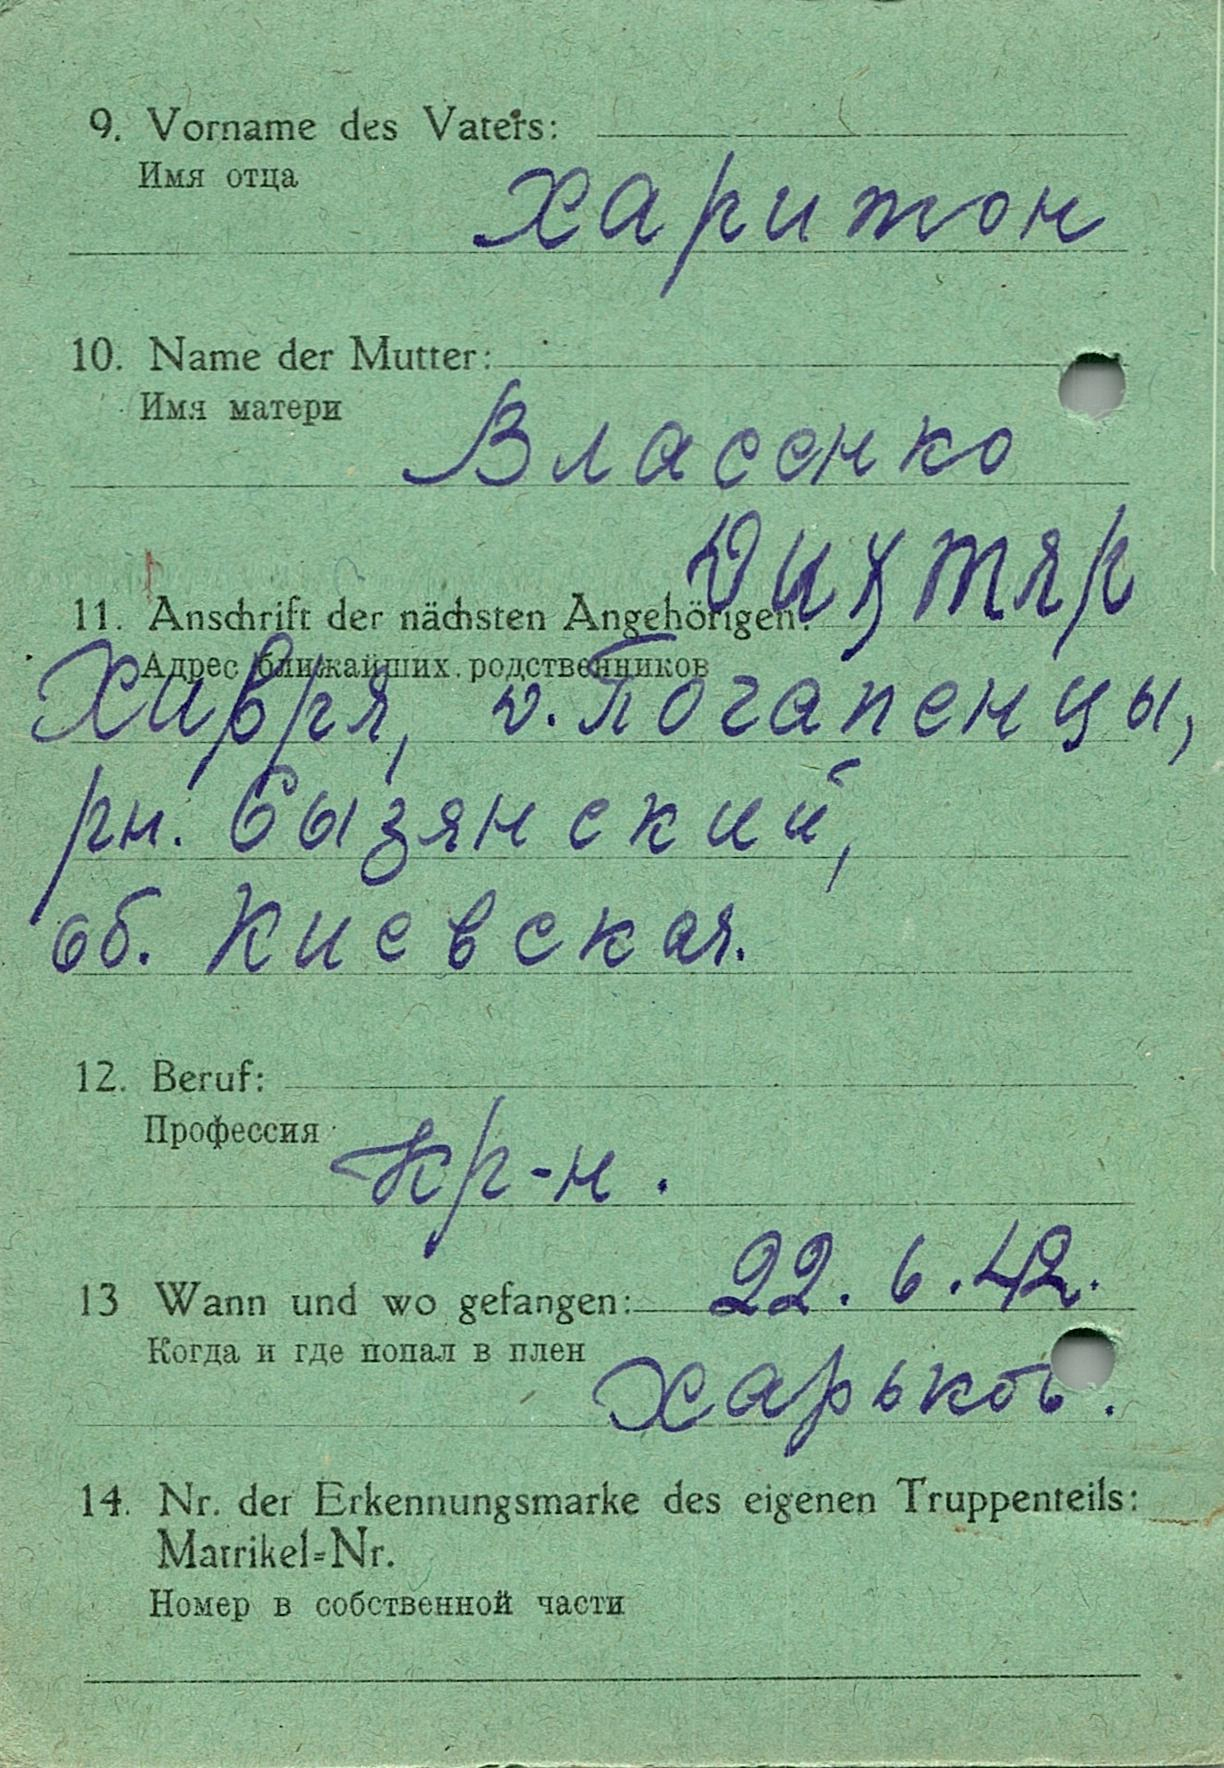 9. Vorname des Vaters:
Имя отца
Харитон
10. Name der Mutter:
Имя матери
Власенко
Дихтяр
11. Anschrift der nächsten Angehörigen:
Адрес ближайших родственников
Хивря, д. Погапенцы,
рн. Бызянский,
об. Киевская.
12. Beruf:
Профессия
кр-н.
22. 6. 42.
13 Wann und wo gefangen:
Когда и где попал в плен
Харьков.
14. Nr. der Erkennungsmarke des eigenen Truppenteils:
Matrikel=Nr.
Номер в собственной части